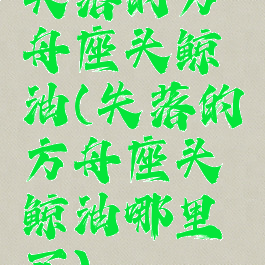 失落的方
舟座头鲸
油(失落的
方舟座头
鲸油哪里
买)